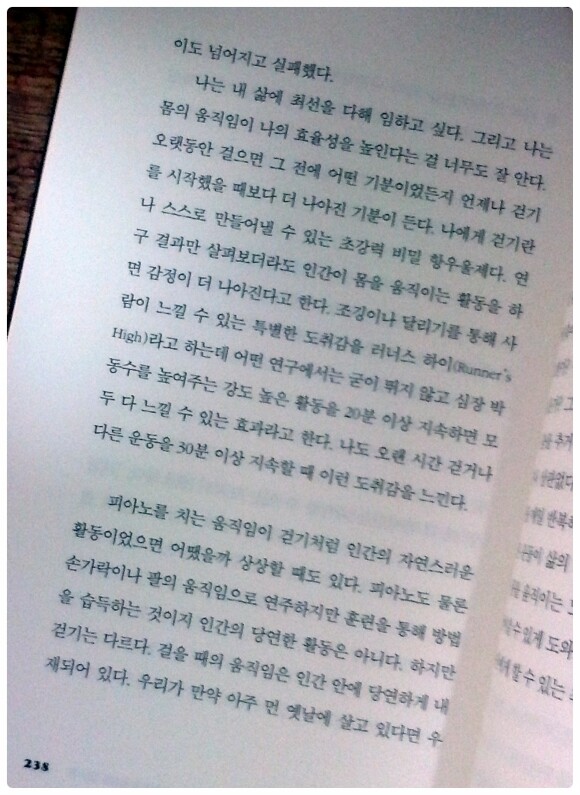 이도 넘어지고 실패했다.
나는 내 삶에 최선을 다해 임하고 싶다. 그리고 나는
몸의 움직임이 나의 효율성을 높인다는 걸 너무도 잘 안다.
오랫동안 걸으면 그 전에 어떤 기분이었든지 언제나 걷기
를 시작했을 때보다 더 나아진 기분이 든다. 나에게 걷기란
나 스스로 만들어낼 수 있는 초강력 비밀 항우울제다. 연
구 결과만 살펴보더라도 인간이 몸을 움직이는 활동을 하
면 감정이 더 나아진다고 한다. 조깅이나 달리기를 통해 사
람이 느낄 수 있는 특별한 도취감을 러너스 하이(Runner's
High)라고 하는데 어떤 연구에서는 굳이 뛰지 않고 심장 박
동수를 높여주는 강도 높은 활동을 20분 이상 지속하면 모
두 다 느낄 수 있는 효과라고 한다. 나도 오랜 시간 걷거나
다른 운동을 30분 이상 지속할 때 이런 도취감을 느낀다.
피아노를 치는 움직임이 걷기처럼 인간의 자연스러운
활동이었으면 어땠을까 상상할 때도 있다. 피아노도 물론
손가락이나 팔의 움직임으로 연주하지만 훈련을 통해 방법
을 습득하는 것이지 인간의 당연한 활동은 아니다. 하지만
걷기는 다르다. 걸을 때의 움직임은 인간 안에 당연하게 내
재되어 있다. 우리가 만약 아주 먼 옛날에 살고 있다면 우
238